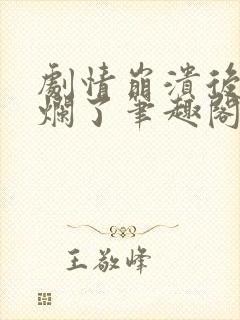 劇情崩潰後
爛了筆趣閣
王敬峰